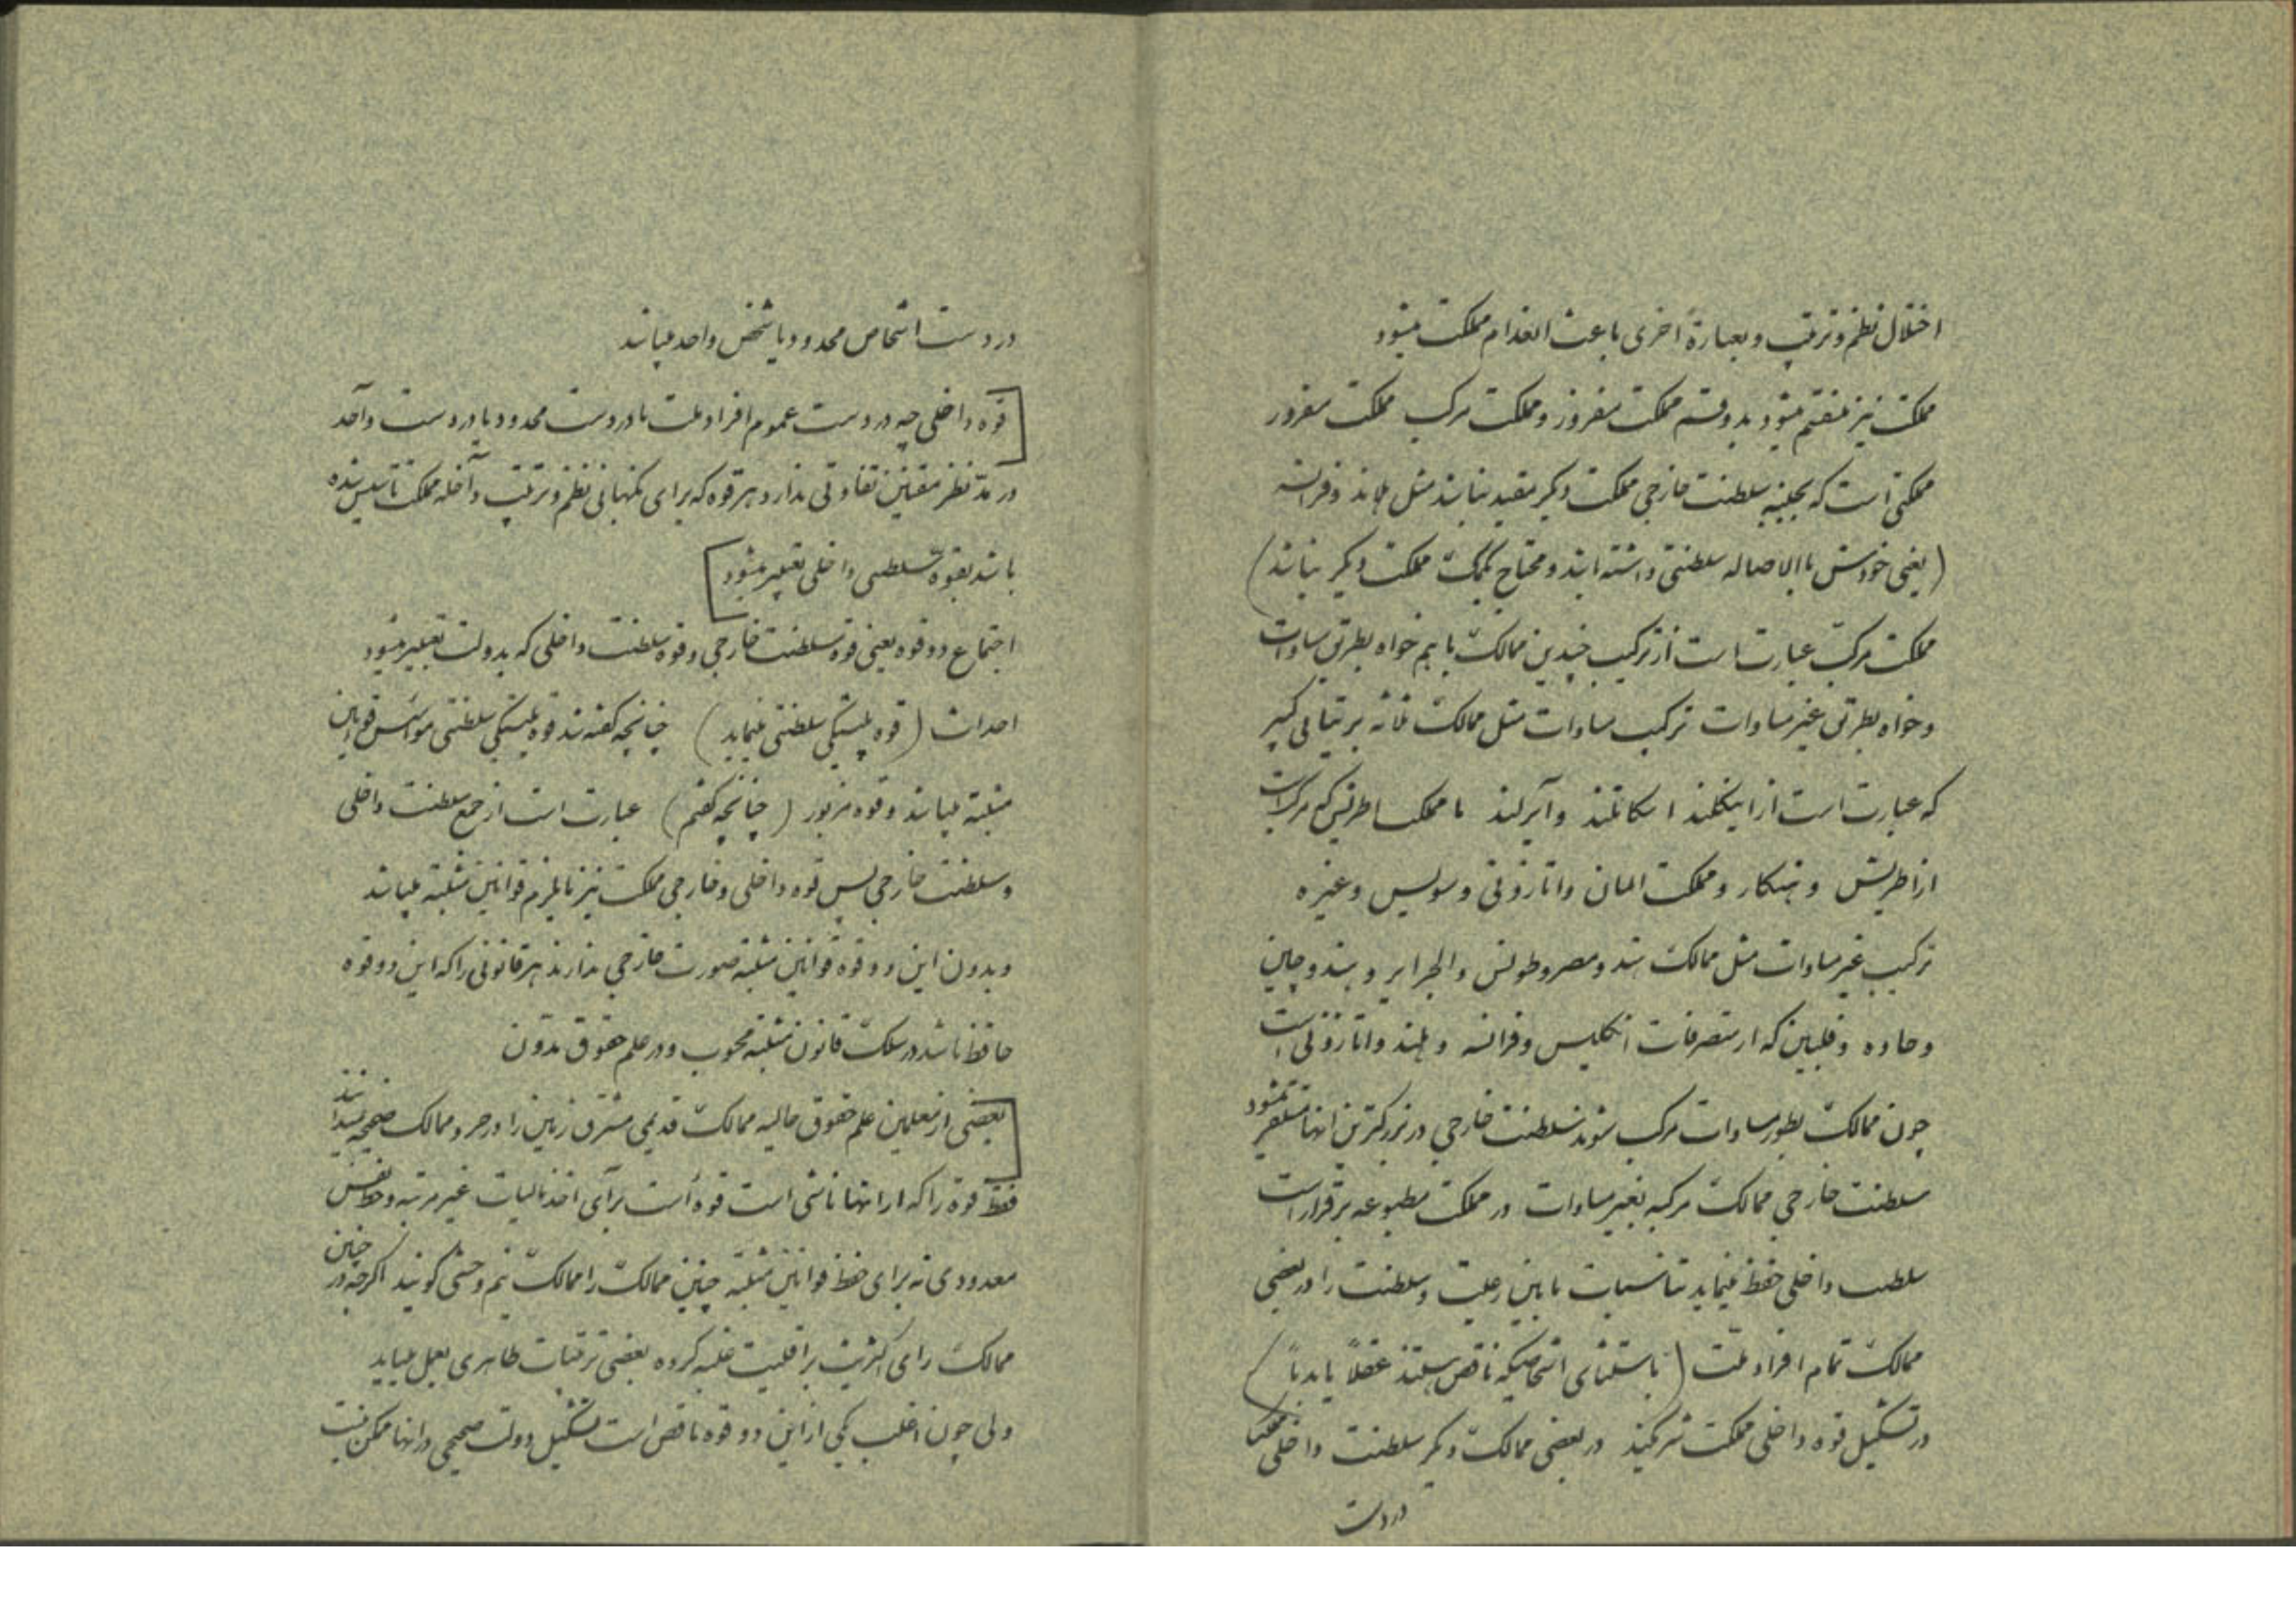 اختلال نظم و ترتیب و بعبارة اخری باعث انعدام مملکت میشود
مملکت نیز منقسم میشود بدو قسم مملکت مفروز و مملکت مرکب مملکت مفروز
مملکتی است که بجنبه سلطنت خارجی مملکت دیگر مقید نباشد مثل هلاند و فرانسه
(یعنی خودش بالاصاله سلطنتی داشته باشد و محتاج بکمک مملکت دیگر نباشد)
مملکت مرکب عبارت است از ترکیب چندین ممالک با هم خواه بطریق مساوات
و خواه بطریق غیر مساوات ترکیب مساوات مثل ممالک ثلاثه بریتانی کبیر
که عبارت است از اینگلند اسکاتلند و آیرلند یا مملکت اطریش که مرکب است
از اطریش و هنکار و مملکت المان و اتازونی و سویس و غیره
ترکیب غیر مساوات مثل ممالک هند و مصر و طونس و الجزایر و هند و چین
و جاوه و فلیپین که از متصرفات انگلیس و فرانسه و هلند و اتازونی است
چون ممالک بطور مساوات مرکب شوند سلطنت خارجی در بزرگترین انها مستقر میشود
سلطنت خارجی ممالک مرکبه بغیر مساوات در مملکت مطبوعه برقرار است
سلطنت داخلی حفظ مینماید مناسبات مابین رعیت و سلطنت را در بعضی
ممالک تمام افراد ملت (باستثنای اشخاصیکه ناقص هستند عقلاً یا بدناً)
در تشکیل قوه داخلی مملکت شرکند در بعضی ممالک دیگر سلطنت داخلی
در دست
در دست اشخاص محدود یا شخص واحد میباشد
قوه داخلی چه در دست عموم افراد ملت یا در دست محدود یا در دست واحد
در مد نظر مقنین تفاوتی ندارد هر قوه که برای نگهبانی نظم و ترتیب داخله مملکت تاسیس شده
باشد بقوه سلطنتی داخلی تعبیر میشود
اجتماع دو قوه یعنی قوه سلطنت خارجی و قوه سلطنت داخلی که بدولت تعبیر میشود
احداث (قوه پلیتیکی سلطنتی مینماید) چنانچه گفته شد قوه پلیتیکی سلطنتی موسس قوانین
مثبته میباشد و قوه مزبور (چنانچه گفتیم) عبارت است از جمع سلطنت داخلی
و سلطنت خارجی پس قوه داخلی و خارجی مملکت نیز مایلزم قوانین مثبته میباشد
و بدون این دو قوه قوانین مثبته صورت خارجی ندارند هر قانونی را که این دو قوه
حافظ باشد در سلک قانون مثبته محسوب و در علم حقوق مدون
بعضی از معلمین علم حقوق حالیه ممالک قدیمی مشرق زمین را در جزو ممالک صحیحه نمیدانند
فقط قوه را که از انها ناشی است قوه است برای اخذ مالیات غیر مرتبه و حظ نفس
معدودی نه برای حفظ قوانین مثبته چنین ممالک را ممالک نیم وحشی گویند اگرچه در چنین
ممالک رای اکثریت بر اقلیت غلبه کرده بعضی ترقیات ظاهری بعمل میاید
ولی چون اغلب یکی از این دو قوه ناقص است تشکیل دولت صحیحی در انها ممکن نیست